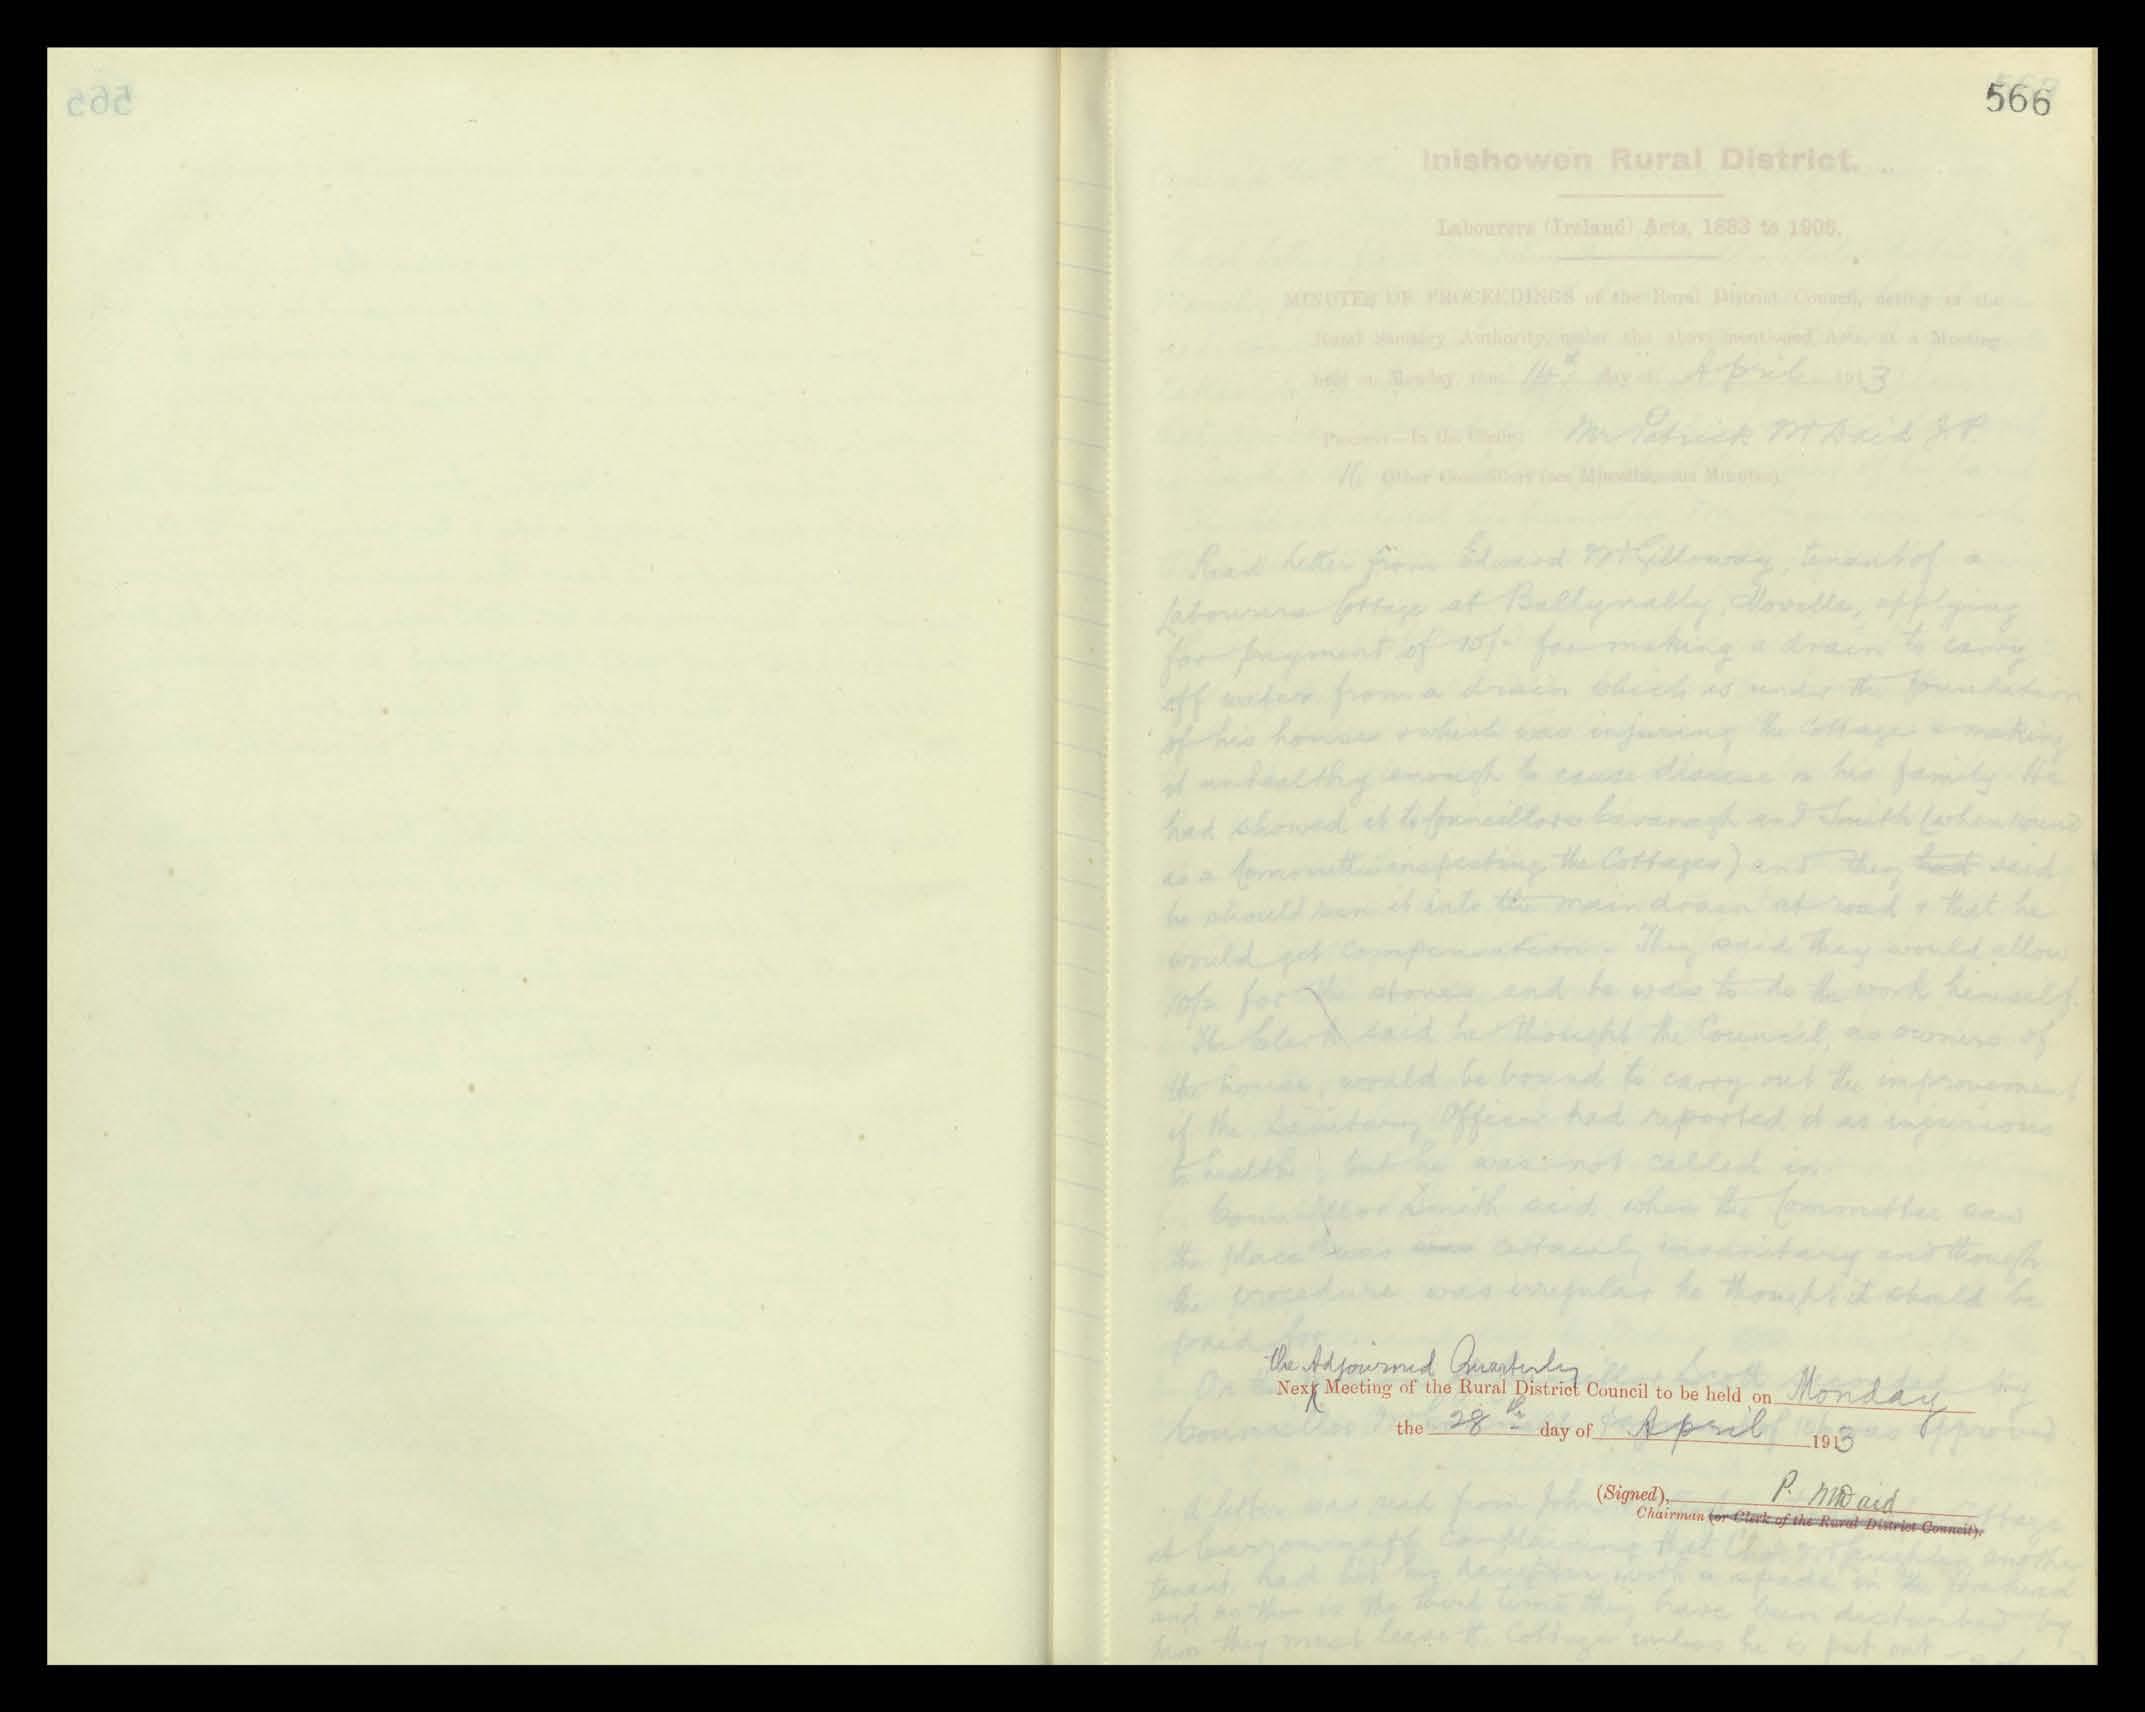 566
Inishowen Rural District.
Labourers (Ireland) Acts, 1883 to 1906.
MINUTES OF PROCEEDINGS of the Rural District Council, acting as the
Rural Sanitary Authority, under the above mentioned Acts, at a Meeting
held on Monday, the 14th day of April 1913
Present—In the Chair: Mr Patrick McDaid J.P.
16 Other Councillors (see Miscellaneous Minutes).
Read letter from Edward McGilloway, tenant of a
Labourers Cottage at Ballynally, Moville, applying
for payment of 10/- for making a drain to carry
off water from a drain which is under the foundation
of his house & which was injuring the Cottage & making
it unhealthy enough to cause disease in his family. He
had showed it to Councillors Cavanagh and Smith (when round
as a Committee inspecting the Cottages) and they had said
he should run it into the main drain at road & that he
would get compensation. They said they would allow
10/- for the stones and he was to do the work himself.
The Clerk said he thought the Council, as owners of
the house, would be bound to carry out the improvement
if the Sanitary Officer had reported it as injurious
to health, but he was not called in.
Councillor Smith said when the Committee saw
the place was certainly insanitary and though
the procedure was irregular he thought it should be
paid for.
the Adjourned Quarterly
Next Meeting of the Rural District Council to be held on Monday
the 28th day of April 1913
(Signed), P. McDaid
Chairman (or Clerk of the Rural District Council).
A letter was read from John Cottage
at complaining that another
tenant, had hit his daughter with a spade in the forehead
and as this is the third time they have been disturbed by
him they must leave the Cottage unless he is put out